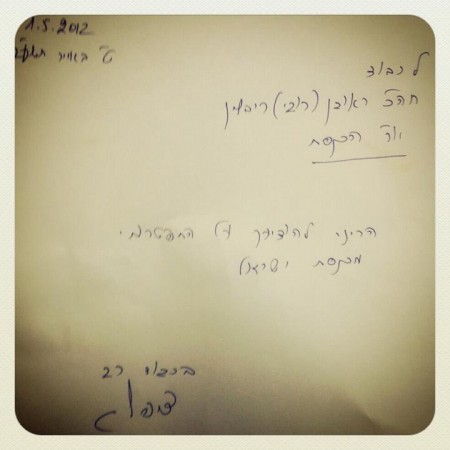 1.5.2012
ט' באייר תשע"ב
לכבוד
חה"כ ראובן (רובי) ריבלין
יו"ר הכנסת
הריני להודיעך על התפטרותי
מכנסת ישראל
בכבוד רב
ציפי ל